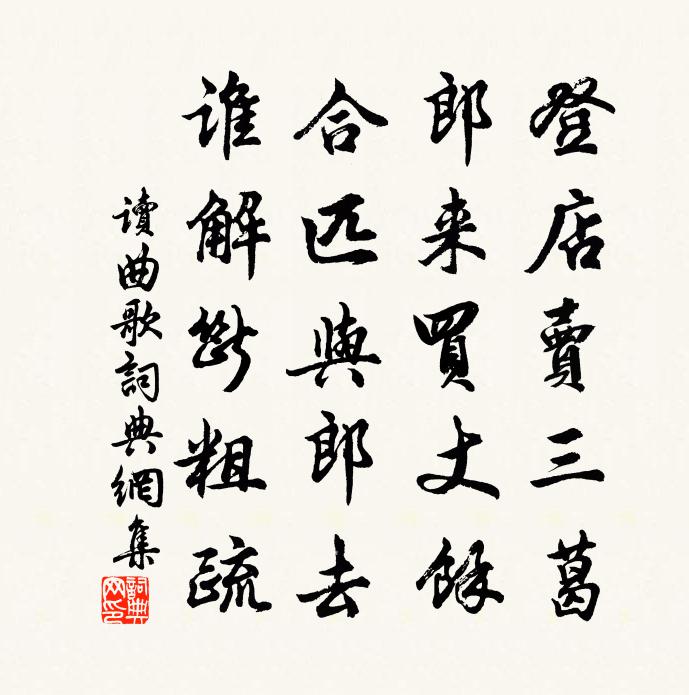 登店賣三葛
郎来買丈餘
合匹與郎去
谁解斷粗疏
讀曲歌詞典網集
詞典網印